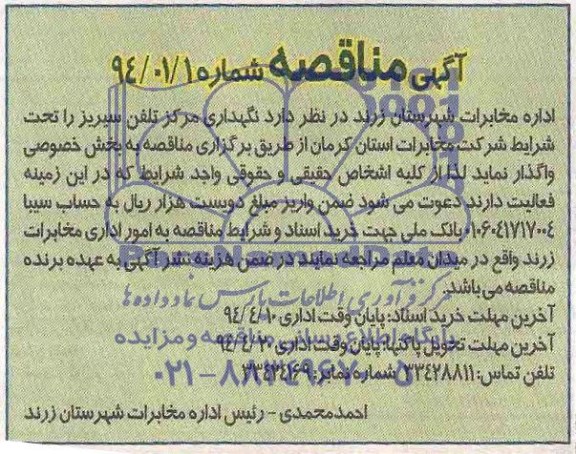 آگهی مناقصه شماره ۹۴/۰۱/۱
اداره مخابرات شهرستان زرند در نظر دارد نگهداری مرکز تلفن سیریز را تحت
شرایط شرکت مخابرات استان کرمان از طریق برگزاری مناقصه به بخش خصوصی
واگذار نماید لذا از کلیه اشخاص حقیقی و حقوقی واجد شرایط که در این زمینه
فعالیت دارند دعوت می شود ضمن واریز مبلغ دویست هزار ریال به حساب سیبا
۰۱۰۶۰۴۱۷۱۷۰۰۴ بانک ملی جهت خرید اسناد و شرایط مناقصه به امور اداری مخابرات
زرند واقع در میدان معلم مراجعه نمایند در ضمن هزینه نشر آگهی به عهده برنده
مناقصه می باشد.
مرکز فرآوری اطلاعات پارس نماد داده ها
آخرین مهلت خرید اسناد: پایان وقت اداری ۹۴/۴/۱۰
پایگاه اطلاع رسانی مناقصه و مزایده
آخرین مهلت تحویل پاکتها: پایان وقت اداری ۹۴/۴/۲۰
تلفن تماس: ۳۳۴۲۸۸۱۱ شماره نمابر: ۳۳۴۲۴۱۶۹
۰۲۱-۸۸۳۴۹۶۷۰-۵
احمدمحمدی - رئیس اداره مخابرات شهرستان زرند